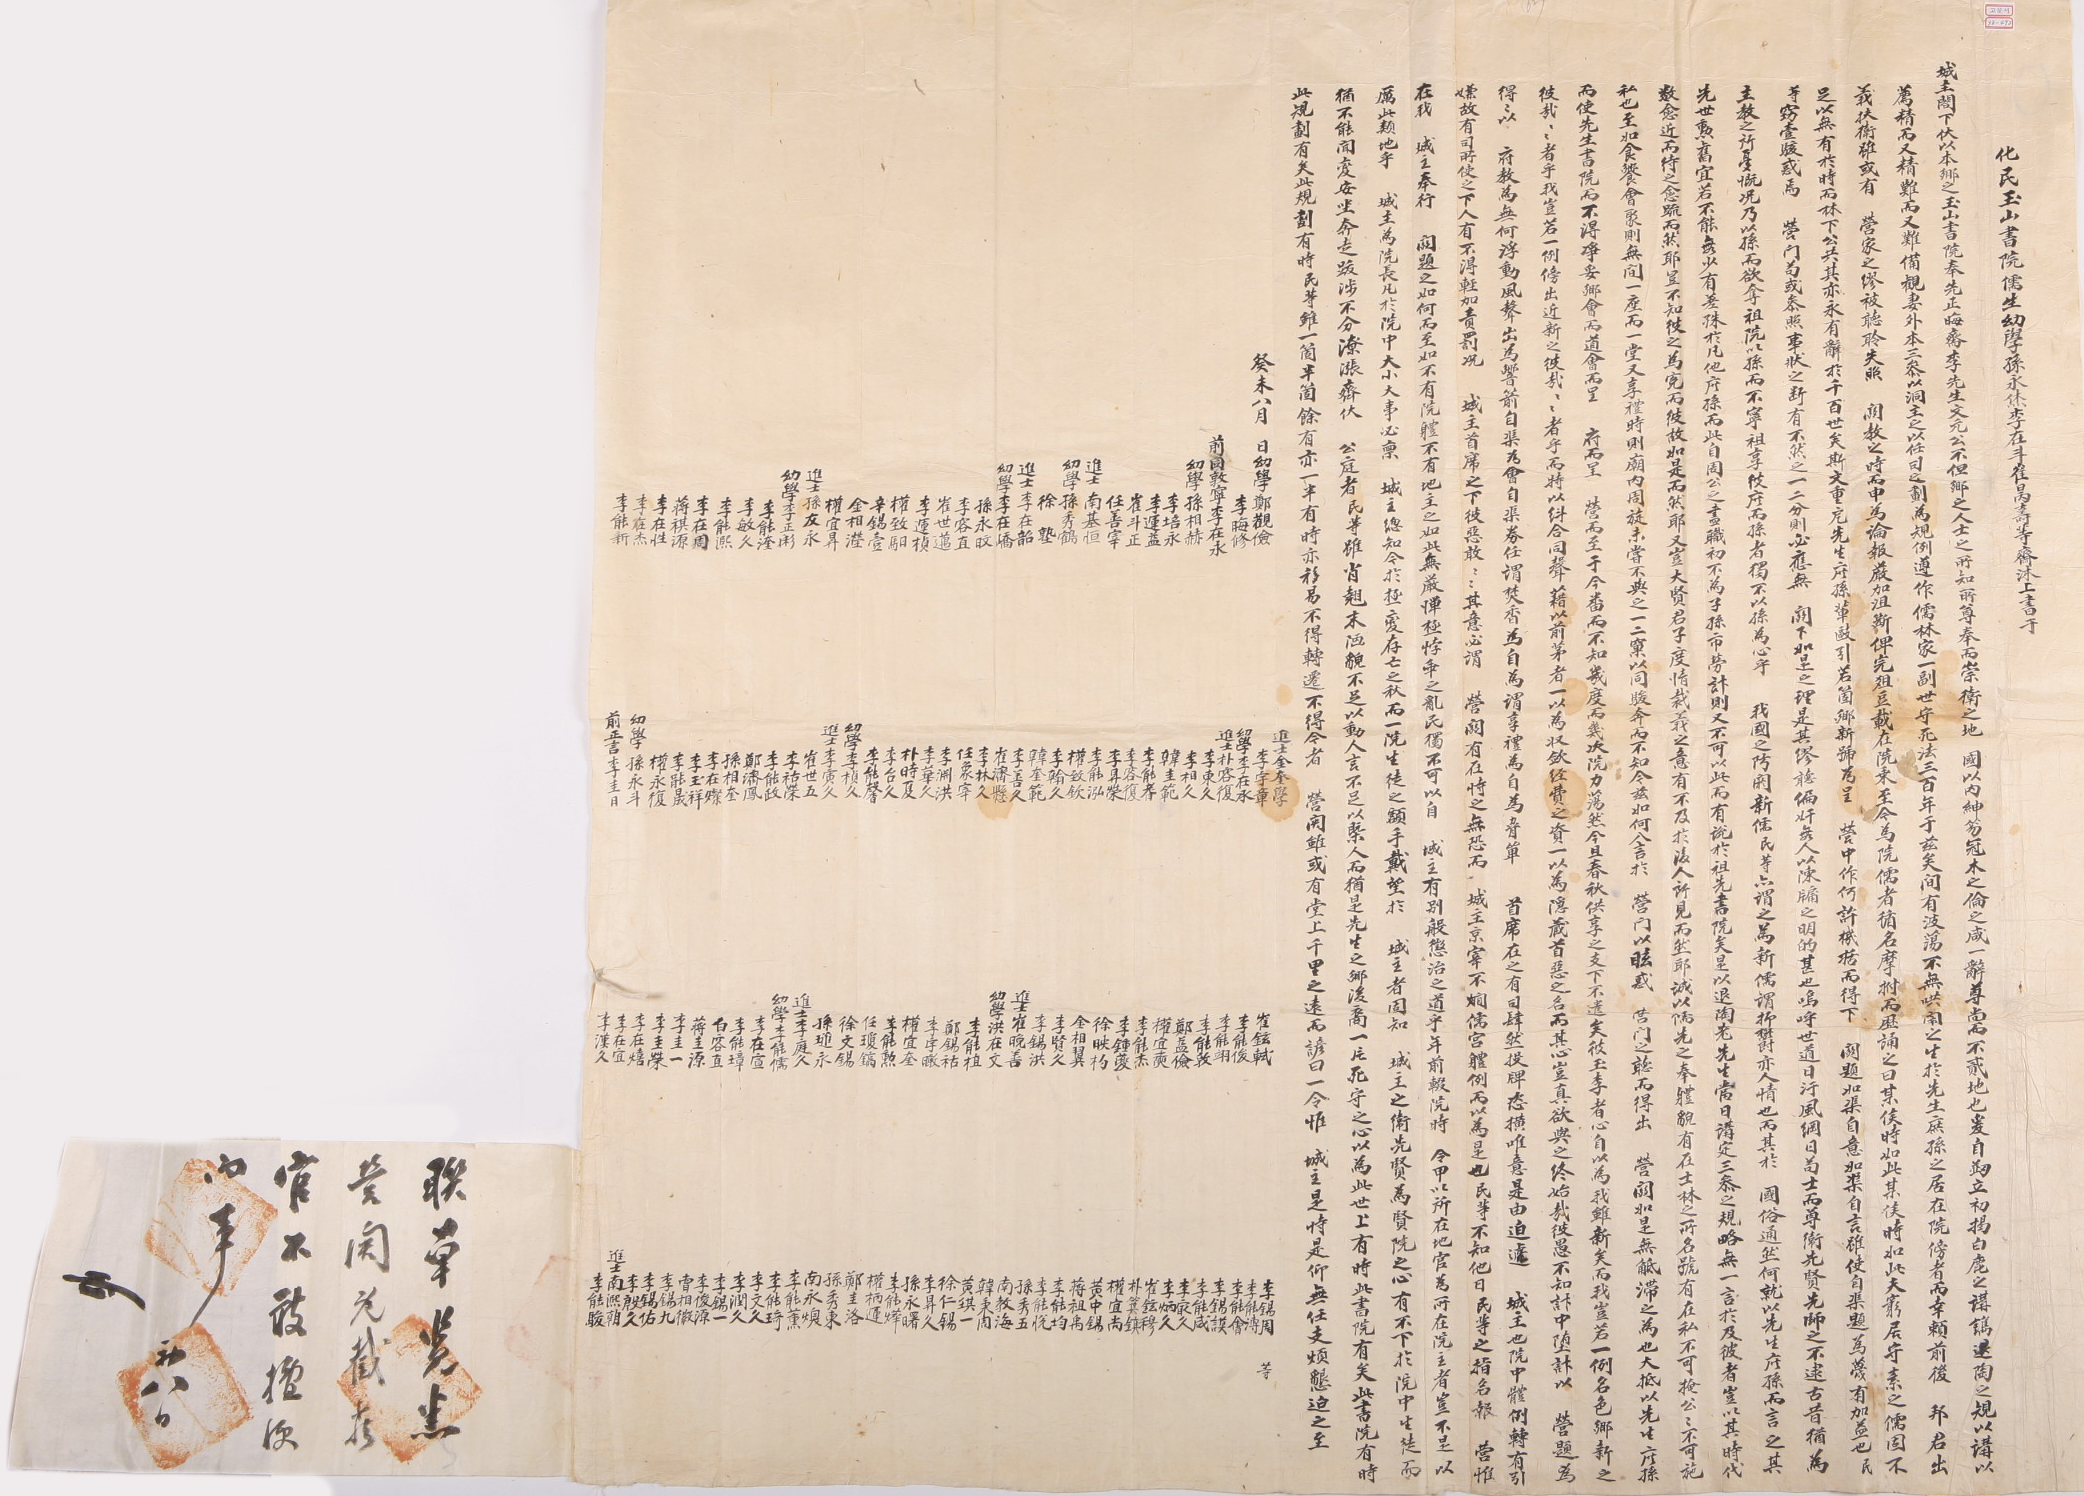 化民玉山書院儒生幼學孫永休李在斗崔昺壽等齋沐上書于
城主閤下伏以本鄉之玉山書院奉先正晦齋李先生文元公不但鄉之人士之所知所尊奉而崇衛之地 國以內紳笏冠木之倫之咸一辭尊尚而不貳地也爰自刱立初揭白鹿之講講退陶之規以講以
薦精而又精難而又難備觀妻外本三叅以洞主之以任司之劃為規例遵作儒林家一副世守死法三百年于玆矣間有波蕩不無哄鬧之生於先生庶孫之居在院傍者而幸賴前後 邦君出
義扶衛雖或有 營家之繆被聽聆失照 關教之時而申為論報嚴加沮斷俾完俎豆載在院乘至今為院儒者循名摩拊而歷誦之曰某侯時如此某侯時如此夫窮居守素之儒固不
足以無有於時而林下公共其亦永有辭於千百世矣斯文重厄先生庶孫輩敺引若箇鄉新號為呈 營中作何許機括而得下 關題如渠自意如渠自言雖使自渠題為蔑有加益也民
等窃壹駭惑焉 營門苟或叅照事狀之斷有不然之一二分則必應無 關下如是之理是其繆聽偏奸咎人以陳牖之明的甚也嗚呼世道日汙風綱日苟士而尊衛先賢先師之不逮古昔猶為
主教之所憂慨况乃以孫而欲奪祖院以孫而不寧祖享彼庶而孫者獨不以孫為心乎 我國之防閑新儒民等亦謂之為新儒謂抑欝亦人情也而其於 國俗通然何就以先生庶孫而言之其
先世勲舊宜若不能無少有差殊於凡他庶孫而此自周公之盡職初不為子孫市勞計則又不可以此而有說於祖先書院矣是以退陶老先生當日講定三叅之規略無一言於及彼者豈以其時代
數愈近而待之愈䟽而然耶豈不知彼之為寃而彼故如是而然耶又豈大賢君子度情裁義之意有不及於後人所見而然耶誠以儒先之奉體貌有在士林之所名號有在私不可掩公公不可施
私也至如食饗會聚則無間一座而一堂又享禮時則廟內周旋未嘗不與之一二窠以同駿奔而不知今玆如何入言於 營門以眩惑 營門之聽而得出 營關如是無觝滯之為也大抵以先生庶孫
而使先生書院而不得爭妥鄉會而道會而呈 府而呈 營而至于今番而不知幾度而幾次院力蕩然今且春秋供享之支下不遑矣彼玉李者心自以為我雖新矣而我豈若一例名色鄉新之
彼哉彼哉者乎我豈若一例傍出近新之彼哉彼哉者乎而特以糾合同聲藉以前茅者一以為収斂經費之資一以為隱藏首惡之名而其心豈真欲與之終始哉彼愚不知計中墮計以 營題為
得得以 府教為無何浮動風聲出為響箭自渠為會自渠劵任謂焚香為自為謂享禮為自為脊單 首席在之有司肆然投牌恣橫唯意是由迫遽 城主也院中體例轉有引
嫌故有司所使之下人有不得輕加責罰况 城主首席之下彼惡敢敢其意必謂 營關有在恃之無恐而 城主京宰不嫺儒宮體例而以為是也民等不知他日民等之指名報 營惟
在我 城主奉行 關題之如何而至如不有院體不有地主之如此無嚴憚極悖乖之亂民獨不可以自 城主有別般懲治之道乎年前報院時 令甲以所在地官為所在院主者豈不是以
厲此類地乎 城主為院長凡於院中大小大事必稟 城主總知今於極憂存亡之秋而一院生徒之額手戴望於 城主者固知 城主之衛先賢為賢院之心有不下於院中生徒而
猶不能聞憂安坐奔走跋涉不分潦漲齊伏 公庭者民等雖肖翹木洒貌不足以動人言不足以槩人而猶是先生之鄉後裔一片死守之心以為此世上有時此書院有矣此書院有時
此規劃有矣此規劃有時民等雖一箇半箇餘有亦一半有時亦移易不得轉遷不得令者 營関雖或有堂上千里之遠而諺曰一令惟 城主是恃是仰無任支煩懇迫之至
癸未八月 日幼學鄭觀儉
李晦修
前同敦寧李在永
幼學孫相赫
李培永
李運益
崔斗正
任善宰
進士南基恒
幼學孫秀鶴
徐塾
進士李在韶
幼學李在嶠
孫永旼
李容直
崔世邁
李運楨
權致駰
辛錫壹
金相瀅
權宜昇
進士孫友永
幼學李正彬
李能瀅
李敏久
李能熙
李在周
蔣祺源
李在性
李在杰
李能新
進士金奎學
李宇章
幼學李在永
進士朴容復
李東久
李相久
韓圭範
李能孝
李容復
李昇榮
李能泓
權致欽
李翰久
韓奎範
李善久
崔濟懸
李林久
任象宰
李測洪
李華久
朴時夏
李台久
李能馨
幼學李楨久
進士李寅久
崔世五
李祐榮
李能政
鄭濟鳳
孫相奎
李在燦
李玉祥
李能晟
權永復
幼學孫永斗
前正言李圭日
崔鉉軾
李能俊
李能翊
李能敦
鄭益儉
權宜奭
李能杰
李鍾蓂
徐映杓
金相翼
李賢久
李錫洪
進士崔晩善
幼學洪在文
李能植
鄭錫祐
李宇畷
權宜奎
李能勲
任瓊鎬
徐文錫
孫璡永
進士李庭久
幼學李能儒
李在宣
李能璋
白容直
蔣圭源
李圭一
李圭榮
李在熺
李在宜
李漢久
李錫周
李能溥
李能會
李錫謨
李能咸
李家久
李炳久
崔鉉穆
朴箕鎮
權宜尚
黃中錫
蔣祖禹
李能均
李能悅
孫秀五
南教海
韓秉尚
黃琪一
徐仁錫
李昇久
孫永曙
李能燁
權炳運
鄭圭洛
孫秀東
南永煥
李能薰
李能琦
李文久
李潤久
李錫一
李俊源
曹相徹
李錫九
李錫佑
李殷久
進士南熙朝
李能駿
等
聯單覽悉
營関允截故
官不敢擅便
向事
卄八日